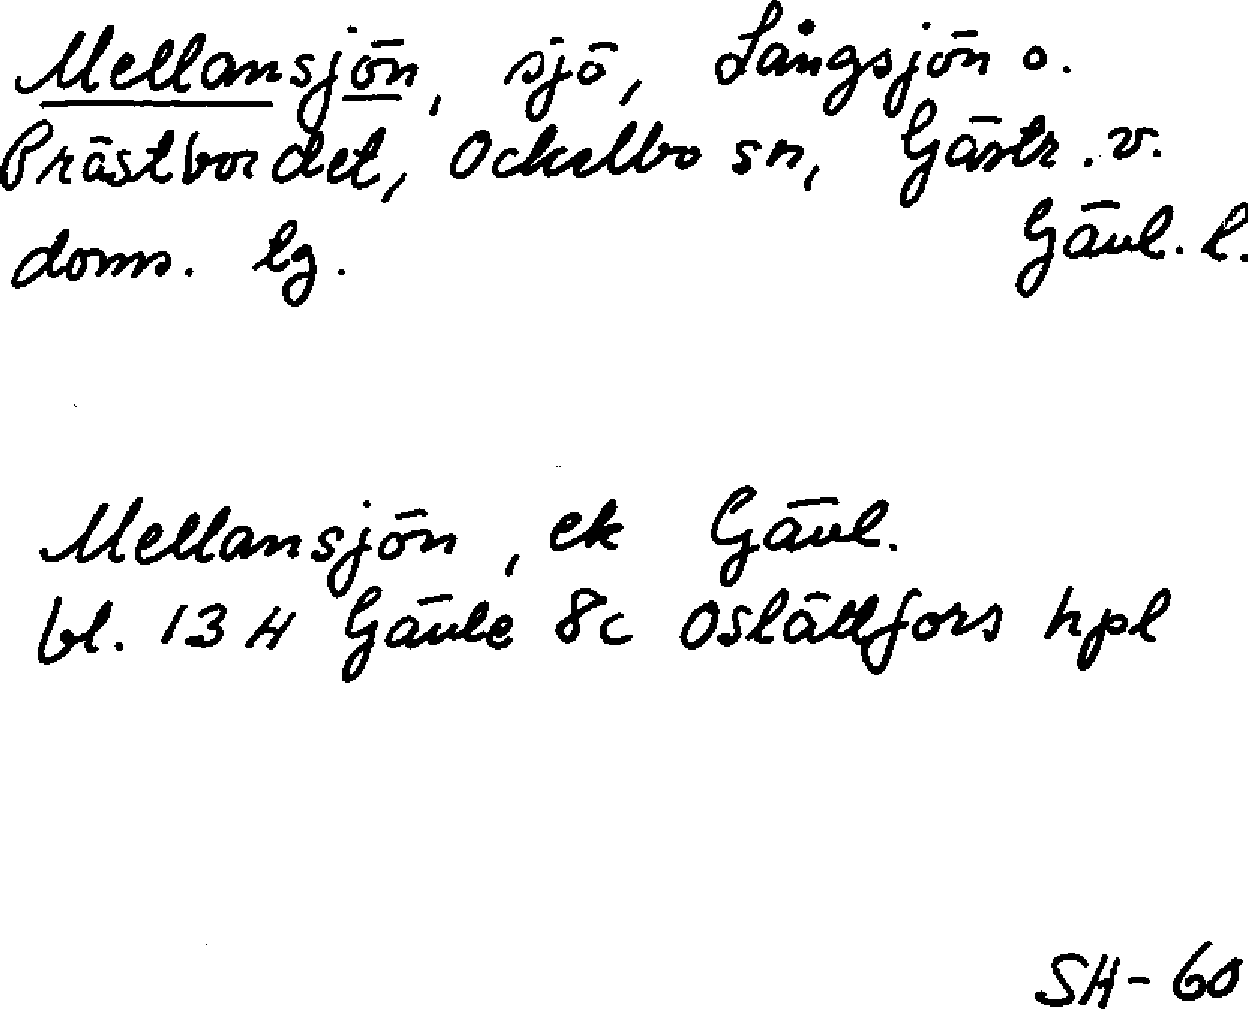 Mellansjön, sjö, Långsjön o.
Prästbordet, Ockelbo sn, Gästr. v.
doms. lg. Gävl. l.
Mellansjön, ek Gävl.
bl. 13 H Gävle 8c Oslättfors hpl
SH-60